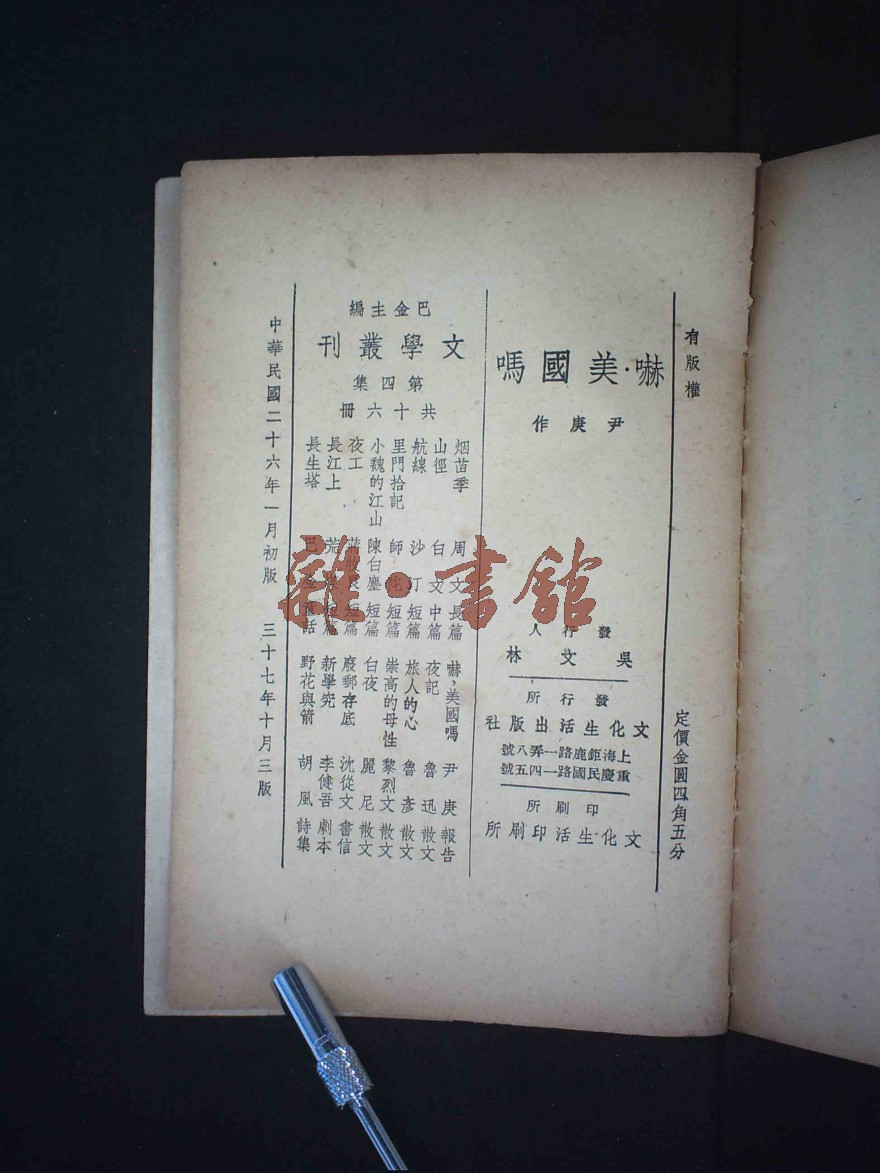 有版權
定價金圓四角五分
嚇·美國嗎
尹庚作
發行人
吳文林
發行所
文化生活出版社
上海鉅鹿路一弄八號
重慶民國路一四五號
印刷所
文化生活印刷所
巴金主編
文學叢刊
第四集
共十六冊
烟苗季 周文 長篇
山徑 白文 中篇
航線 沙汀 短篇
里門拾記 師陀 短篇
小魏的江山 陳白塵 短篇
夜工 蔣牧良 短篇
長江上 荒煤 短篇
長生塔 巴金 童話
嚇,美國嗎 尹庚 報告
夜記 魯迅 散文
旅人的心 魯彥 散文
崇高的母性 黎烈文 散文
白夜 麗尼 散文
廢郵存底 沈從文 書信
新學究 李健吾 劇本
野花與箭 胡風 詩集
中華民國二十六年一月初版 三十七年十月三版
雜·書館